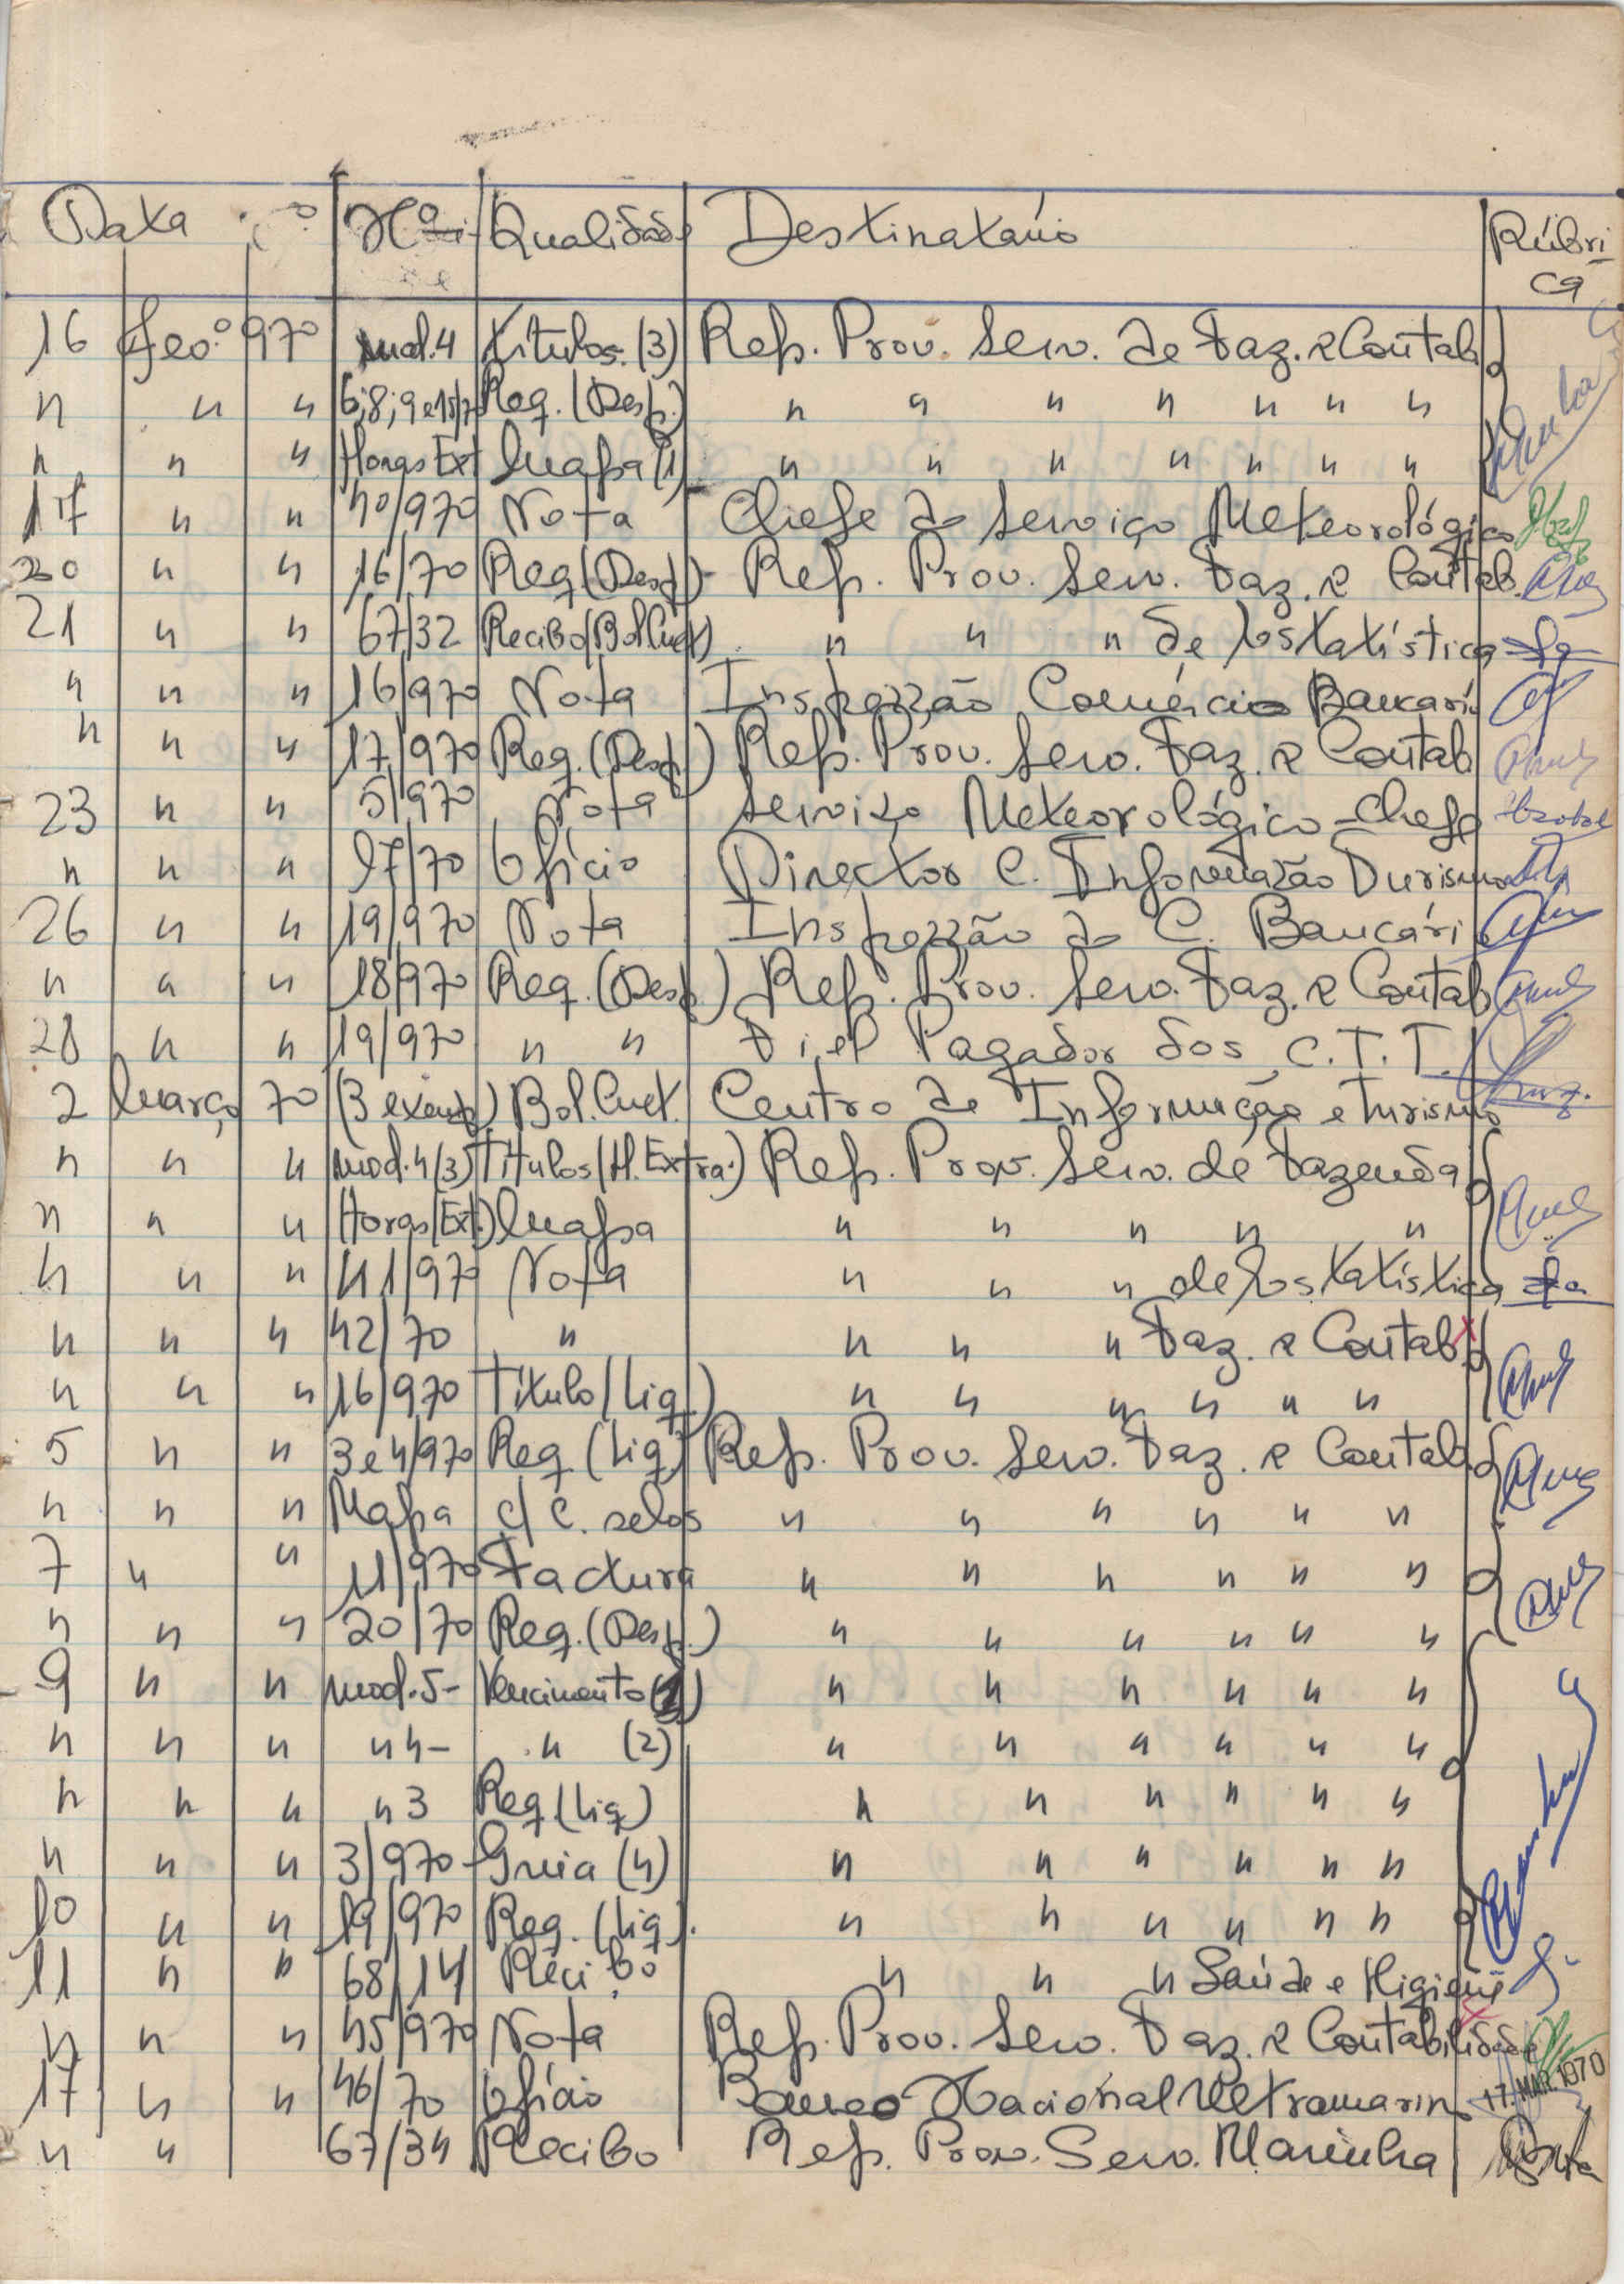 Data Nº Qualidade Destinatário Rúbrica
16 Fev.º 970 mod.4 Títulos.(3) Rep. Prov. Serv. de Faz. e Contab
" " " 6;8;9 e 15/70 Req.(Desp.) " " " " " " "
" " " Horas Ext Mapa (1) " " " " " " "
17 " " 40/970 Nota Chefe do Serviço Meteorológico
20 " " 16/70 Req.(Desp.) Rep. Prov. Serv. Faz. e Contab.
21 " " 67/32 Recibo(Bol.Cuet) " " " de Estatística
" " " 16/970 Nota Inspecção Comércio Bancári
" " " 17/970 Req.(Desp.) Rep. Prov. Serv. Faz. e Contab
23 " " 5/970 Nota Serviço Meteorológico-Chefe
" " " 97/70 Ofício Director C. Informação Turismo
26 " " 19/970 Nota Inspecção do C. Bancári
" " " 18/970 Req.(Desp.) Rep. Prov. Serv. Faz. e Contab
28 " " 19/970 " " Fiel Pagador dos C.T.T.
2 Março 70 (3 exemp.) Bol.Cuet. Centro de Informação e Turismo
" " " mod.4(3) Títulos(H.Extra.) Rep. Prov. Serv. de Fazenda
" " " Horas(Ext.) Mapa " " " " "
" " " 41/970 Nota " " " de Estatística
" " " 42/70 " " " " Faz. e Contab.
" " " 16/970 Título(Liq.) " " " " " "
5 " " 3 e 4/970 Req.(Liq.) Rep. Prov. Serv. Faz. e Contab.
" " " Mapa c/ C. selos " " " " " "
7 " " 11/970 Factura " " " " " "
" " " 20/70 Req.(Desp.) " " " " " "
9 " " mod.5- Vencimento( ) " " " " " "
" " " " 4- " (2) " " " " " "
" " " " 3 Req.(Liq) " " " " " "
" " " 3/970- Guia (4) " " " " " "
10 " " 19/970 Req.(Liq). " " " " " "
11 " " 68/14 Recibo " " " Saúde e Higiene
" " " 45/970 Nota Rep. Prov. Serv. Faz. e Contabilidade
17 " " 46/70 Ofício Banco Nacional Ultramarino 17. MAR. 1970
" " 67/34 Recibo Rep. Prov. Serv. Marinha